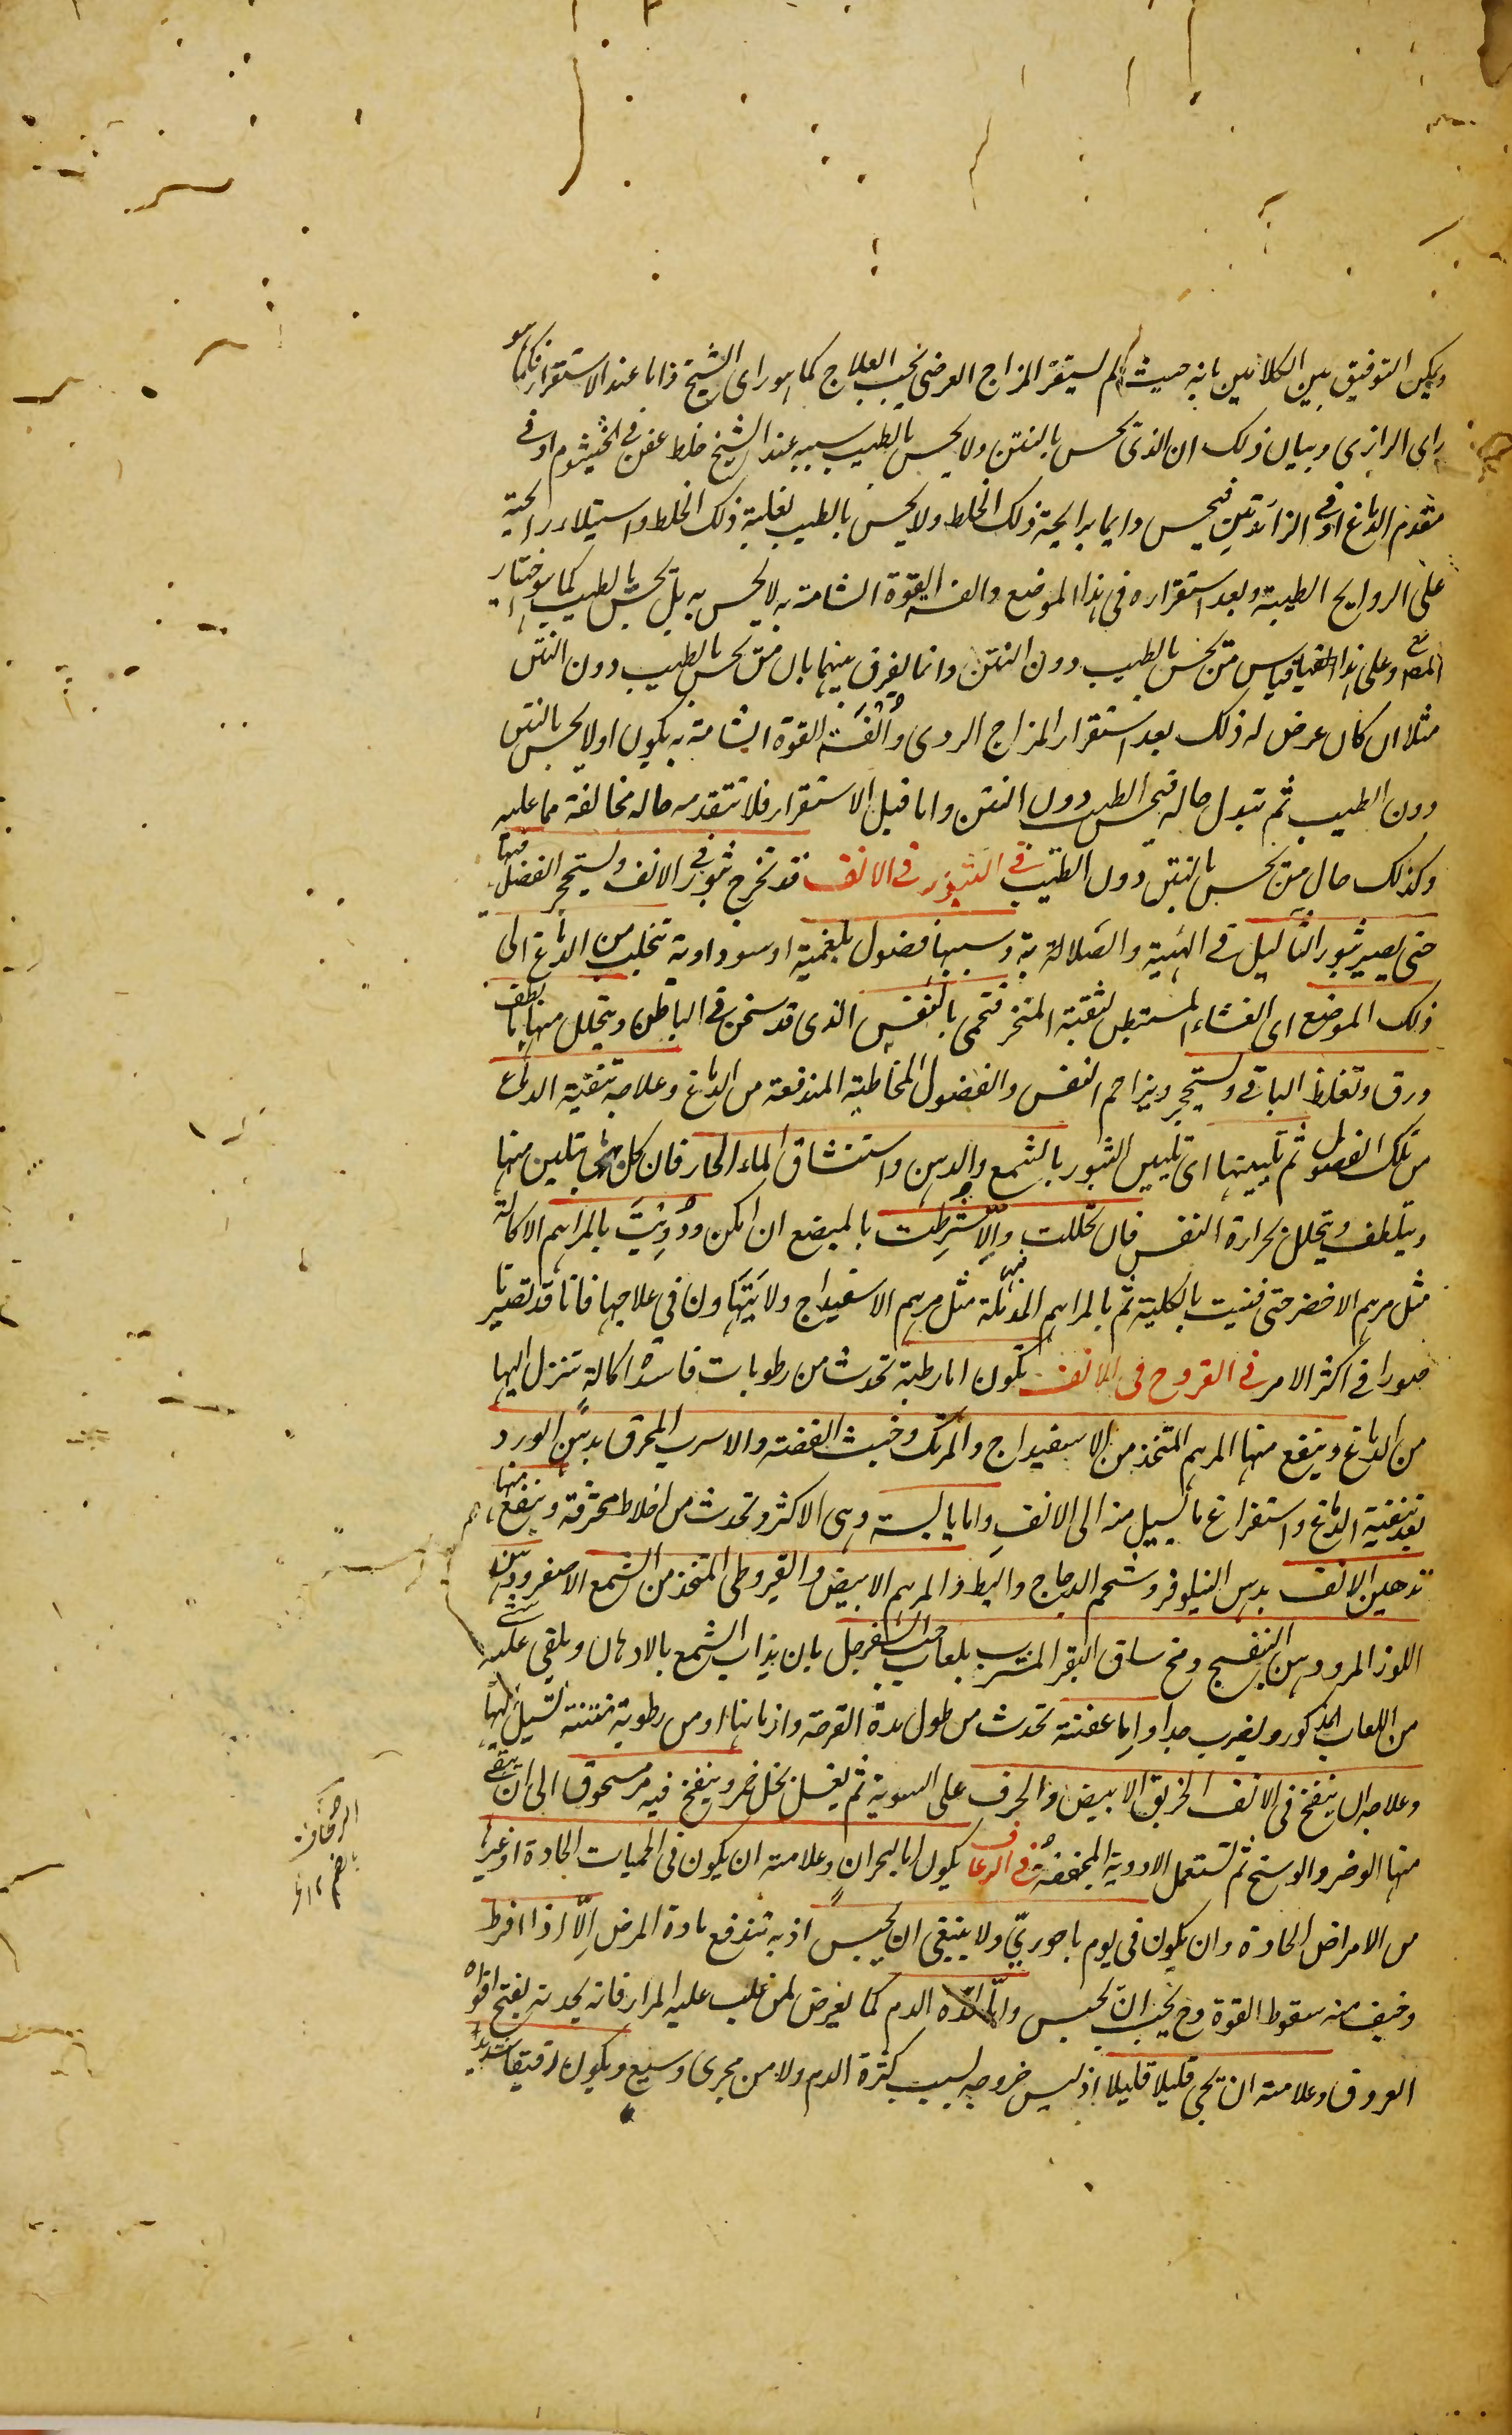 ويمكن التوفيق بين الكلامين بانه حيث لم يستقر المزاج العرضى يجب العلاج كما هو راى الشيخ واما عند الاستقرار فكما هو
راى الرازى وبيان ذلك ان الذى يحس بالنتن ولا يحس بالطيب سببه عند الشيخ خلط عفن فى الخيشوم او فى
مقدم الدماغ او فى الزائدتين فيحس دايما برايحة ذلك الخلط ولا يحس بالطيب لغلبة ذلك الخلط واستيلاء رايحته
على الروايح الطيبة وبعد استقراره فى هذا الموضع والفة القوة الشامة به لا يحس به بل يحس بالطيب كما هو اختيار
المص وعلى هذا قياس من يحس بالطيب دون النتن وانما يفرق بينهما بان من يحس بالطيب دون النتن
مثلا ان كان عرض له ذلك بعد استقرار المزاج الردى والفة القوة الشامة به يكون اولا يحس بالنتن
دون الطيب ثم تبدل حاله فيحس الطيب دون النتن واما قبل الاستقرار فلا تتقدمه حالة مخالفة مما عليه
وكذلك حال من يحس بالنتن دون الطيب فى البثور فى الانف قد تخرج بثور فى الانف ويستحجر الفضل فيها
حتى يصير بثور الثآليل فى الهيئة والصلابة وسببها فضول بلغمية او سوداوية تنجلب من الدماغ الى
ذلك الموضع اى الغشاء المستبطن لثقبة المنخر فتحمى بالنفس الذى قد سخن فى الباطن ويتحلل منها ما لطف
ورق وتغلظ الباقى ويستحجر ويزاحم النفس والفضول المخاطية المندفعة من الدماغ وعلاجه تنقية الدماغ
من تلك الفضول ثم تليينها اى تليين البثور بالشمع والدهن واستنشاق الماء الحار فان كل ذلك تلين منها
ويتلطف ويتحلل بحرارة النفس فان تحللت والا شرطت بالمبضع ان امكن ودويت بالمراهم الاكالة
مثل مرهم الاخضر حتى فنيت بالكلية ثم بالمراهم المدملة مثل مرهم الاسفيداج ولا يتهاون فى علاجها فانها قد تصير
ناصورا فى اكثر الامر فى القروح فى الانف تكون اما رطبة تحدث من رطوبات فاسدة اكالة تنزل اليها
من الدماغ وينفع منها المرهم المتخذ من الاسفيداج والمرتك وخبث الفضة والاسرب المحرق بدهن الورد
بعد تنقية الدماغ واستفراغ ما يسيل منه الى الانف واما يابسة وهى الاكثر وتحدث من اخلاط محترقة وينفع منها
تدهين الانف بدهن النيلوفر وشحم الدجاج والبط والمرهم الابيض والقيروطى المتخذ من الشمع الاصفر ودهن
اللوز المر ودهن البنفسج ومخ ساق البقر المشرب بلعاب حب السفرجل بان يذاب الشمع بالادهان ويلقى عليه شئ
من اللعاب المذكور ويضرب جيدا واما عفنة تحدث من طول مدة القرحة وازمانها او من رطوبة منتنة تسيل اليها
وعلاجه ان ينفخ فى الانف الخربق الابيض والحرف على السوية ثم يغسل بخل خمر وينفخ فيه مر مسحوق الى ان ينقى
منها الوضر والوسخ ثم تستعمل الادوية المجففة فى الرعاف يكون اما لبحران وعلامته ان يكون فى الحميات الحادة او غيرها
من الامراض الحادة وان يكون فى يوم باحورى ولا ينبغى ان يحبس اذ به تندفع مادة المرض الا اذا افرط
وخيف منه سقوط القوة وح يجب ان يحبس واما لحدة الدم كما يعرض لمن غلب عليه المرار فانه لحدته يفتح افواه
العروق وعلامته ان يجى قليلا قليلا اذ ليس خروجه لسبب كثرة الدم ولا من مجرى وسيع ويكون رقيقا